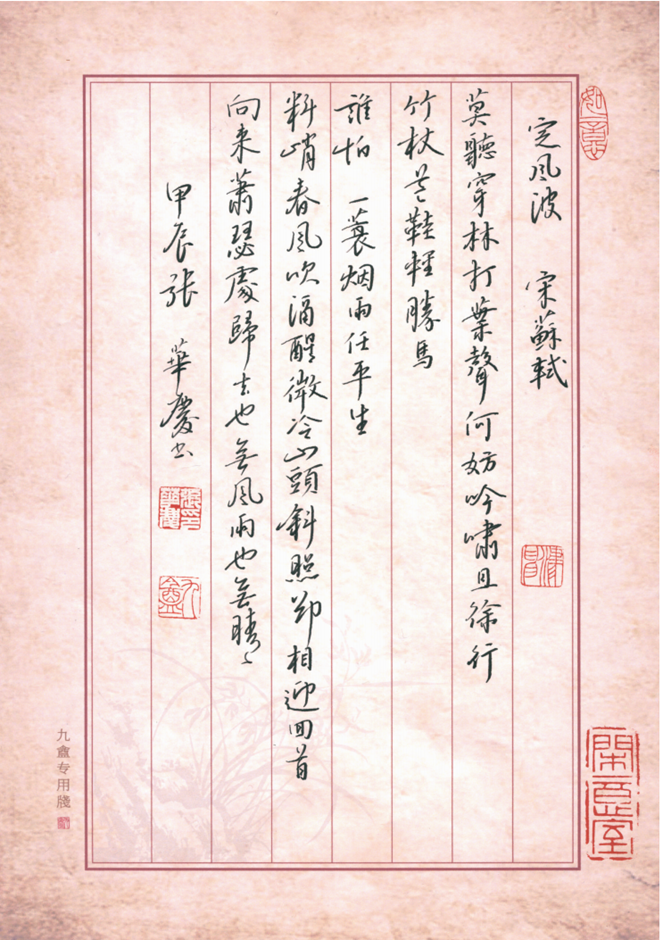 定风波 宋蘇軾
莫聽穿林打葉聲何妨吟嘯且徐行
竹杖芒鞋輕勝馬
誰怕 一蓑烟雨任平生
料峭春风吹酒醒微冷山頭斜照却相迎回首
向来蕭瑟處歸去也無风雨也無晴
甲辰張 華慶书
如意
閑章室
九龠专用牋